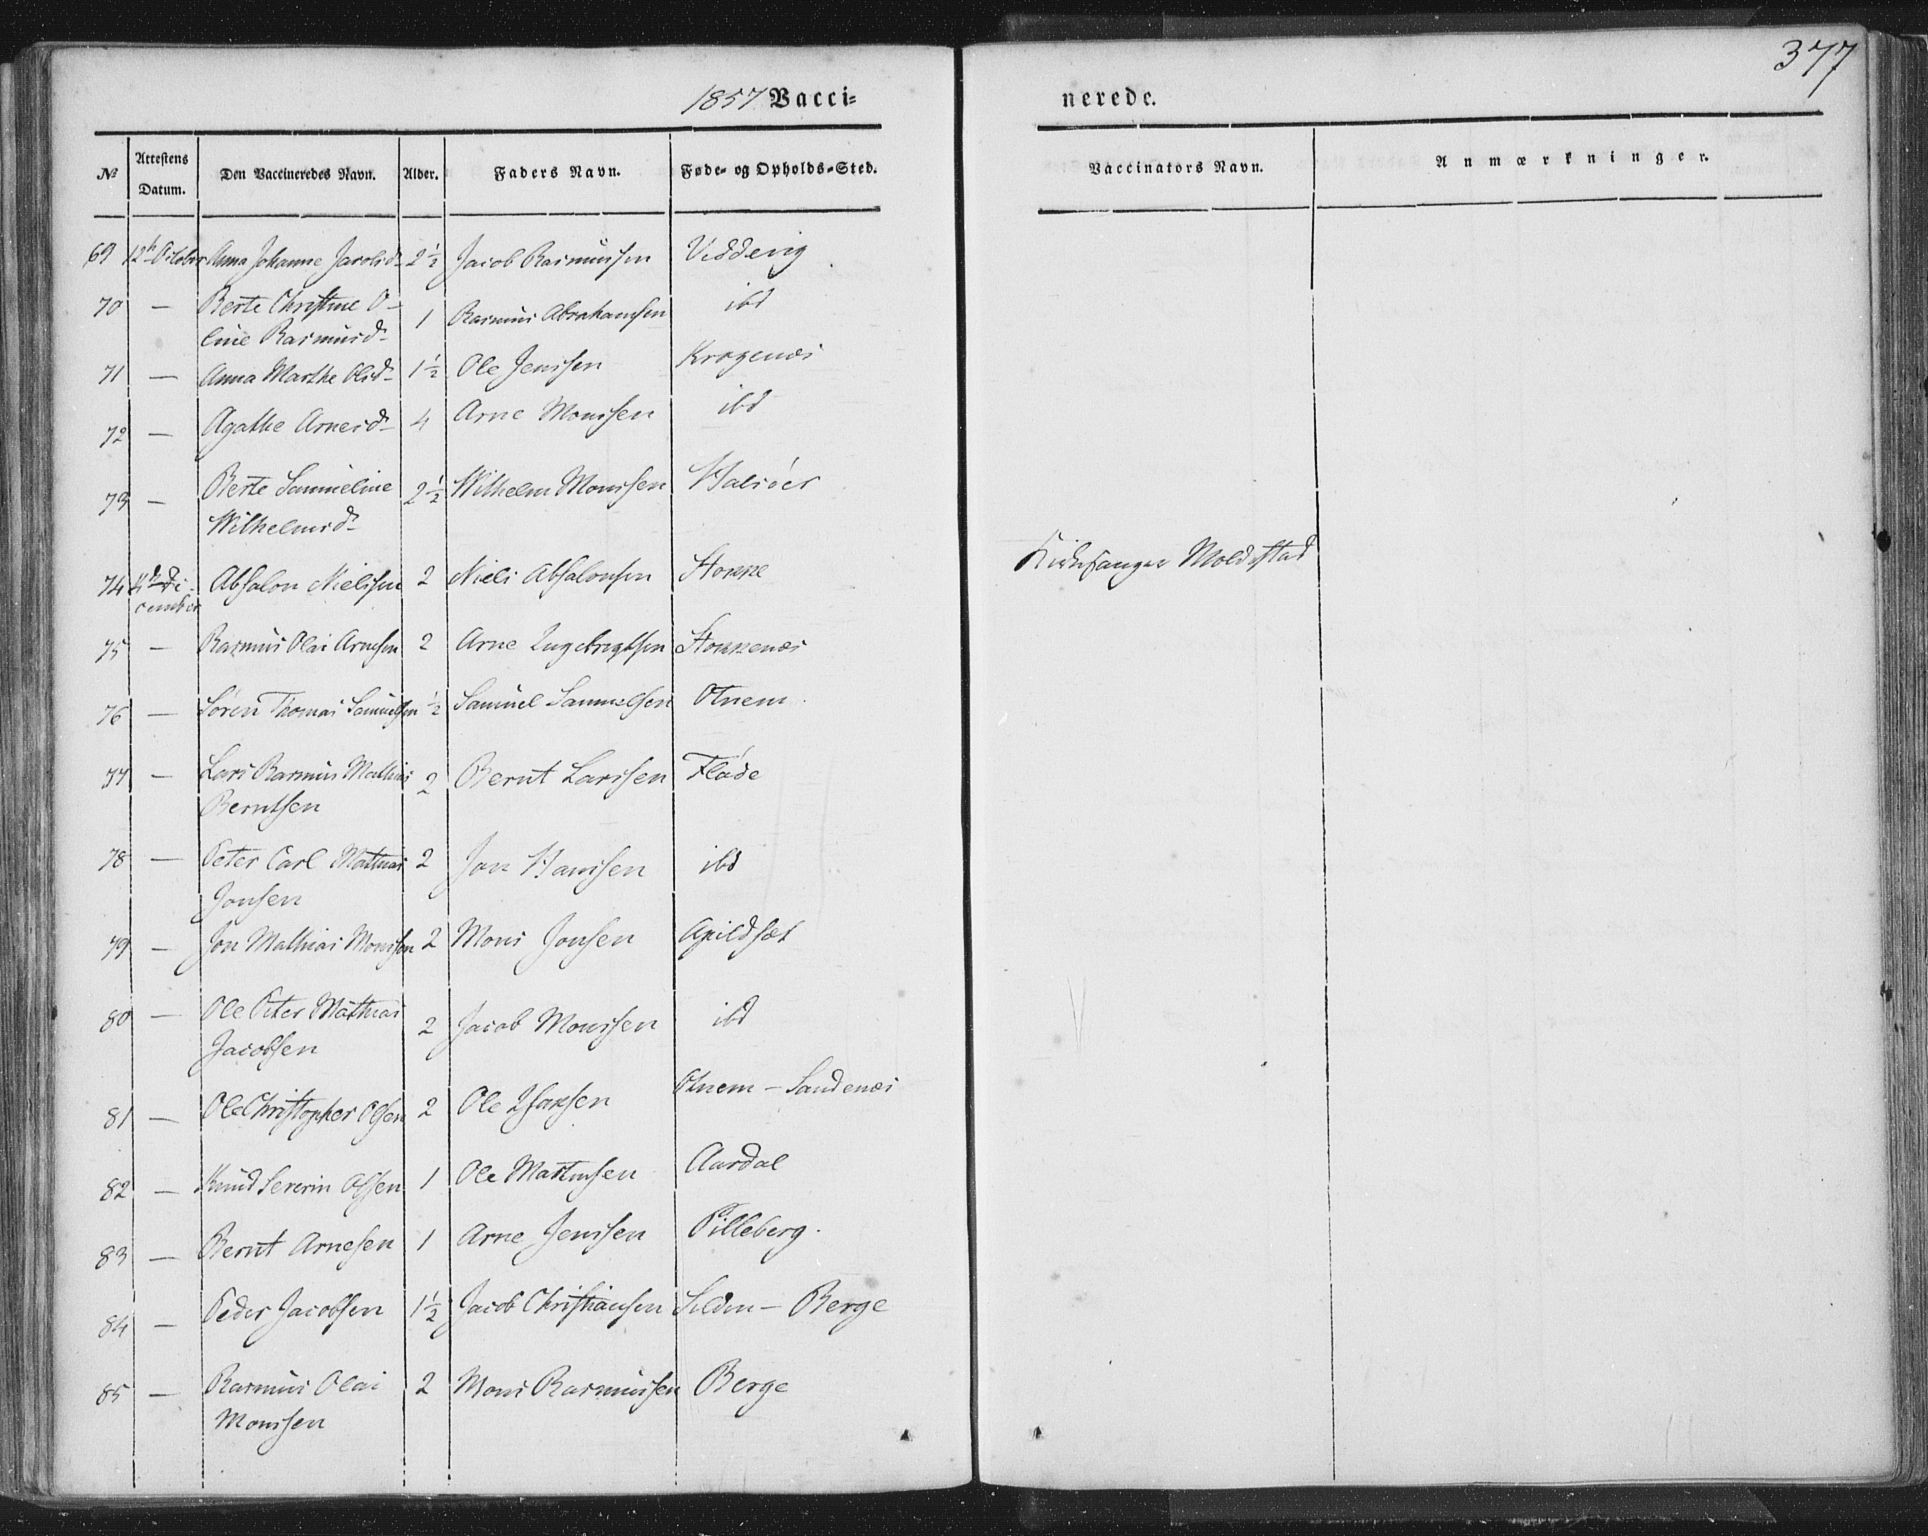 377
1857 Vacci=
nerede.
№ Attestens Datum. Den Vaccineredes Navn. Alder. Faders Navn. Føde- og Opholds-Sted. Vaccinators Navn. Anmærkninger.
69 12te October Anna Johanne Jacobsd. 2½ Jacob Rasmussen Vedderig
70 — Berte Christine O-
line Rasmusd. 1 Rasmus Abrahamsen ibd
71 — Anna Marthe Olsd. 1½ Ole Jenssen Krogenæs
72 — Agathe Arnesd. 4 Arne Monssen ibd
73 — Berte Samueline
Wilhelmsd. 2½ Wilhelm Monssen Halsöer
74 De-
cember Absalon Nielssen 2 Niels Absalonsen Stokke Kirkesanger Moldestad
75 — Rasmus Olai Arnesen 2 Arne Ingebrigtsen Stokkenæs
76 — Sören Thomas Samuelsen ½ Samuel Samuelsen Otnem.
77 — Lars Rasmus Mathias
Berntsen 2 Bernt Larssen Flöde
78 — Peter Carl Mathias
Jonsen 2 Jon Hanssen ibd
79 — Jon Mathias Monssen 2 Mons Jonsen Apildsæt
80 — Ole Peter Mathias
Jacobsen 2 Jacob Monssen ibd
81 — Ole Christopher Olsen 2 Ole Isaksen Otnem — Sandenæs
82 — Knud Severin Olsen 1 Ole Martinsen Aardal
83 — Bernt Arnesen 1 Arne Jenssen Pilleberg.
84 — Peder Jacobsen 1½ Jacob Christiansen Selden — Berge
85 — Rasmus Olai
Monssen 2 Mons Rasmussen Berge